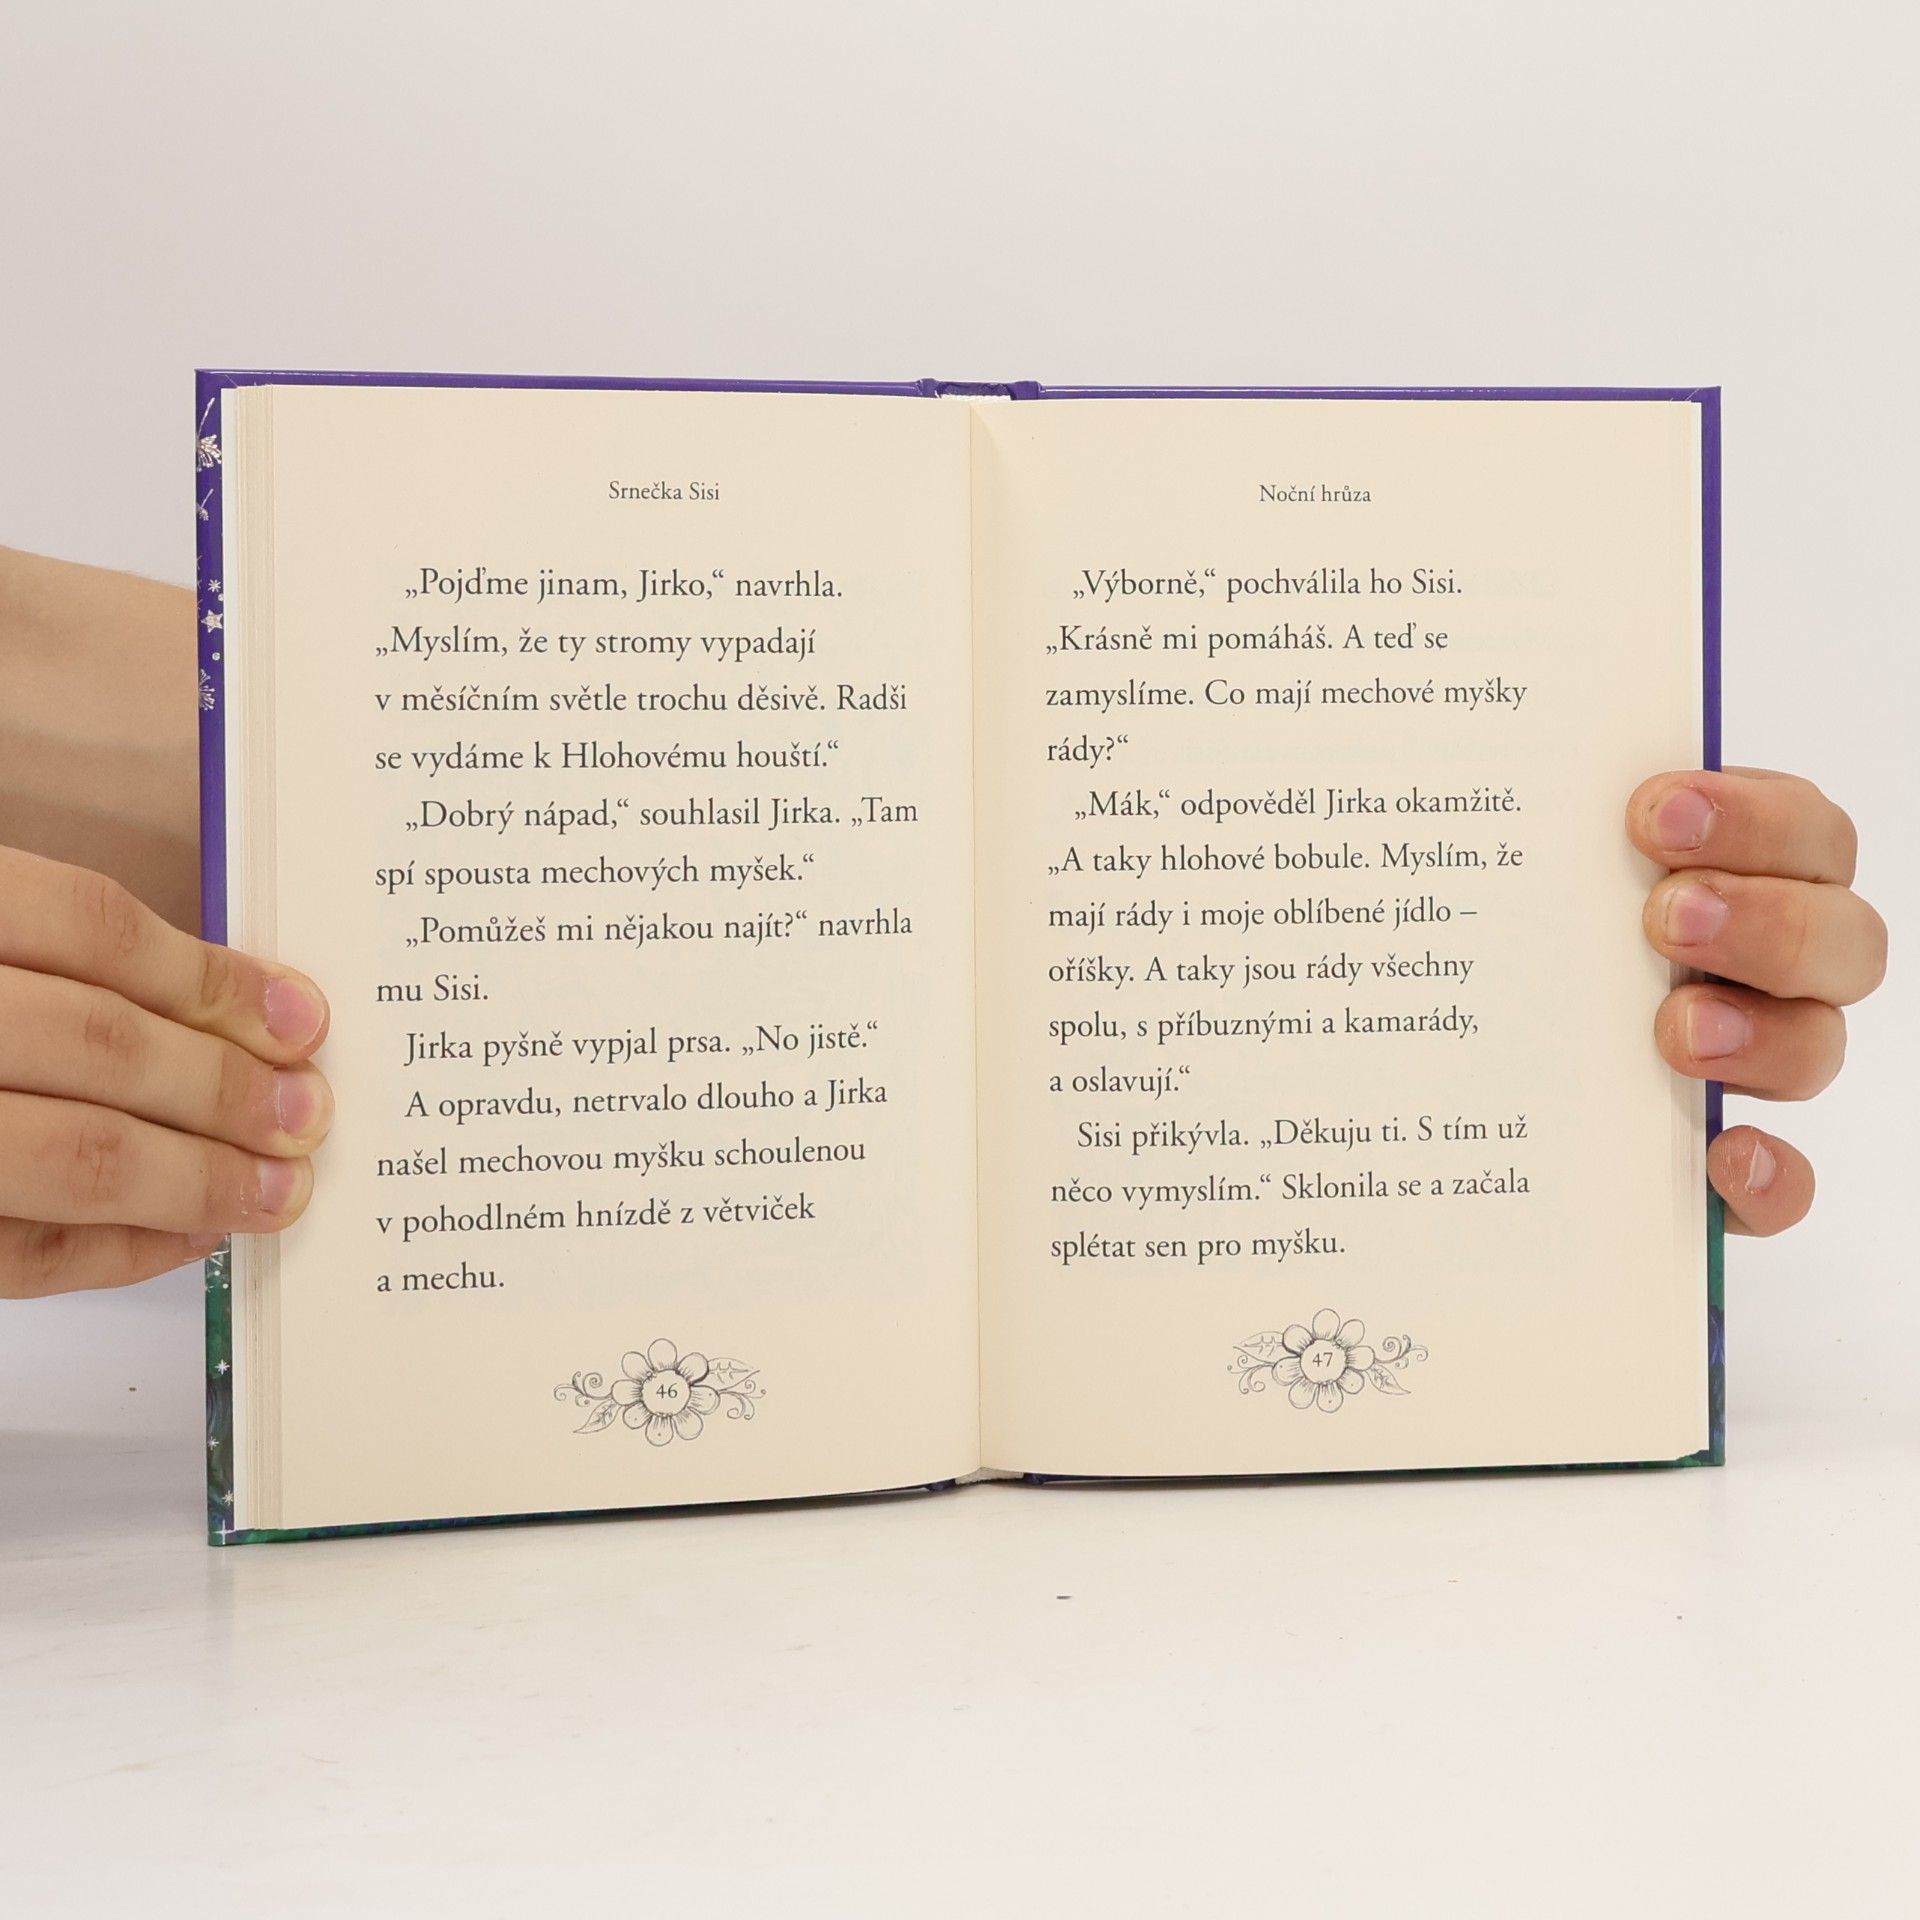 Srnečka Sisi
„Pojďme jinam, Jirko,“ navrhla.
„Myslím, že ty stromy vypadají
v měsíčním světle trochu děsivě. Radši
se vydáme k Hlohovému houští.“
„Dobrý nápad,“ souhlasil Jirka. „Tam
spí spousta mechových myšek.“
„Pomůžeš mi nějakou najít?“ navrhla
mu Sisi.
Jirka pyšně vypjal prsa. „No jistě.“
A opravdu, netrvalo dlouho a Jirka
našel mechovou myšku schoulenou
v pohodlném hnízdě z větviček
a mechu.
46
Noční hrůza
„Výborně,“ pochválila ho Sisi.
„Krásně mi pomáháš. A teď se
zamyslíme. Co mají mechové myšky
rády?“
„Mák,“ odpověděl Jirka okamžitě.
„A taky hlohové bobule. Myslím, že
mají rády i moje oblíbené jídlo –
oříšky. A taky jsou rády všechny
spolu, s příbuznými a kamarády,
a oslavují.“
Sisi přikývla. „Děkuju ti. S tím už
něco vymyslím.“ Sklonila se a začala
splétat sen pro myšku.
47